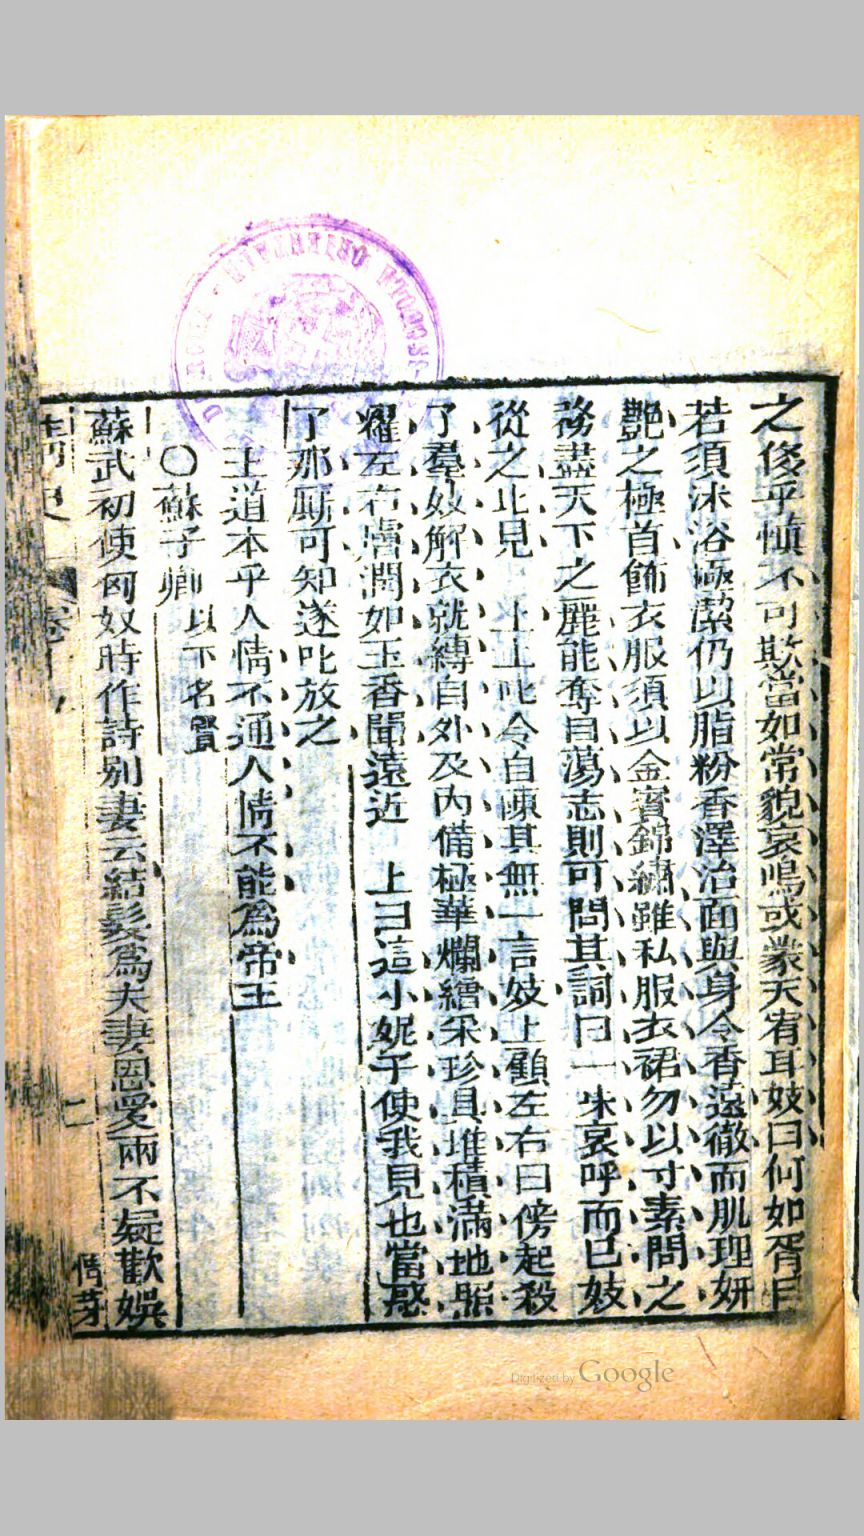 之倐乎愼不可欺當如常貌哀鳴或蒙天宥耳妓曰何如胥曰
若須沐浴極潔仍以脂粉香澤治面與身令香遠徹而肌理妍
艷之極首飾衣服須以金寳錦繡雖私服衣裙勿以寸素間之
務盡天下之麗能奪目蕩志則可問其詞曰一味哀呼而已妓
從之比見 上上叱令自陳其無一言妓上顧左右曰傍起殺
了羣妓解衣就縛自外及内備極華爛繒采珍具堆積滿地照
耀左右膚潤如玉香聞遠近 上曰這小妮子使我見也當惑
了那厮可知遂叱放之
王道本乎人情不通人情不能爲帝王
○蘇子卿以下名賢
蘇武初使匈奴時作詩别妻云結髮爲夫妻恩愛兩不疑歡娛
情史 卷 二 情芽
Digitized by Google